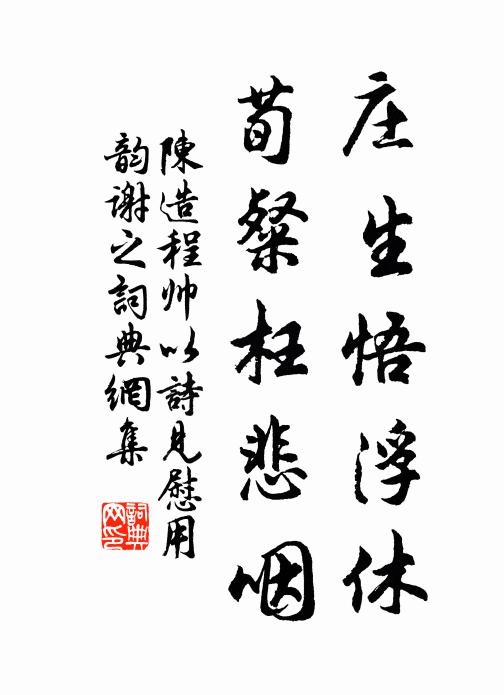 庄生悟浮休
荀粲枉悲咽
陳造程帅以詩見慰用
韵谢之詞典網集
詞典网印